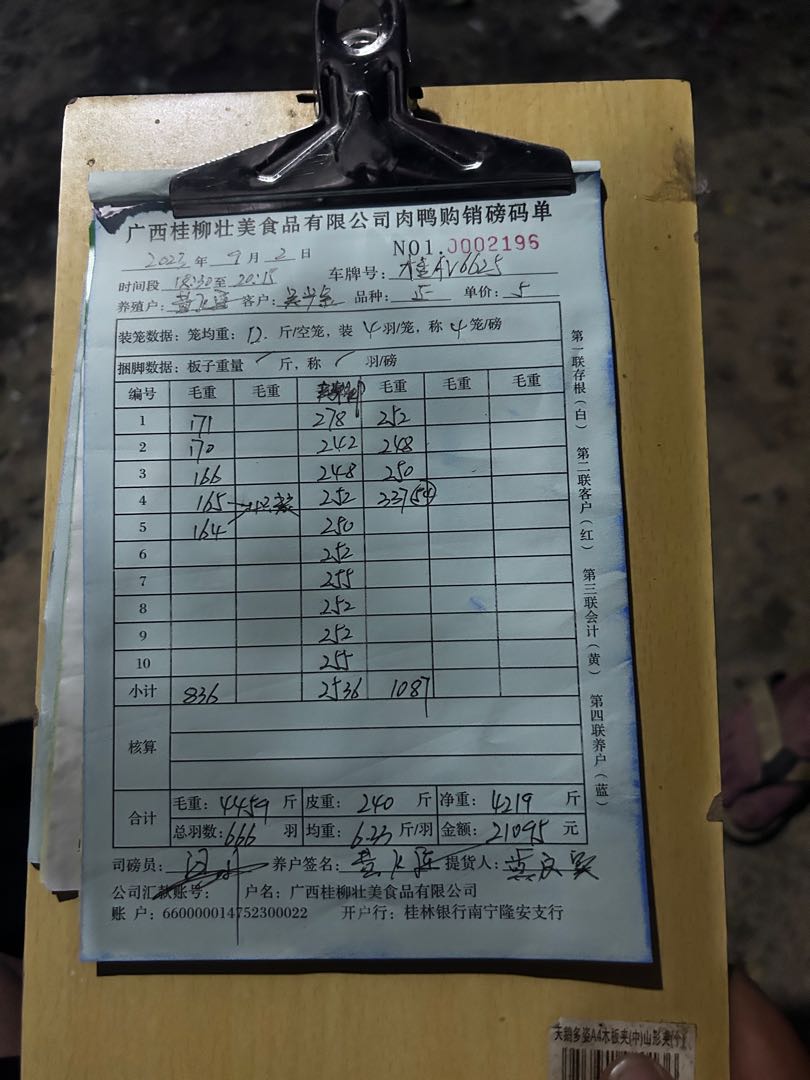 广西桂柳壮美食品有限公司肉鸭购销磅码单
2023 年 9 月 2 日 NO1.J002196
时间段 18:30至 20:15 车牌号: 桂AV6625
养殖户: 客户: 品种: 5 单价: 5
装笼数据: 笼均重: 12. 斤/空笼, 装 4 羽/笼, 称 4 笼/磅
捆脚数据: 板子重量 / 斤, 称 / 羽/磅
编号 毛重 毛重 毛重 毛重 毛重
1 171 278 252
2 170 242 248
3 166 248 250
4 165 252 337 54
5 164 250
6 252
7 255
8 252
9 252
10 255
小计 836 2536 1087
核算
合计 毛重: 4459 斤 皮重: 240 斤 净重: 4219 斤
总羽数: 666 羽 均重: 6.33 斤/羽 金额: 21095 元
司磅员: 养户签名: 提货人:
公司汇款账号: 户名: 广西桂柳壮美食品有限公司
账 户: 660000014752300022 开户行: 桂林银行南宁隆安支行
第一联存根(白) 第二联客户(红) 第三联会计(黄) 第四联养户(蓝)
天鹅多姿A4木板夹(中)山形夹